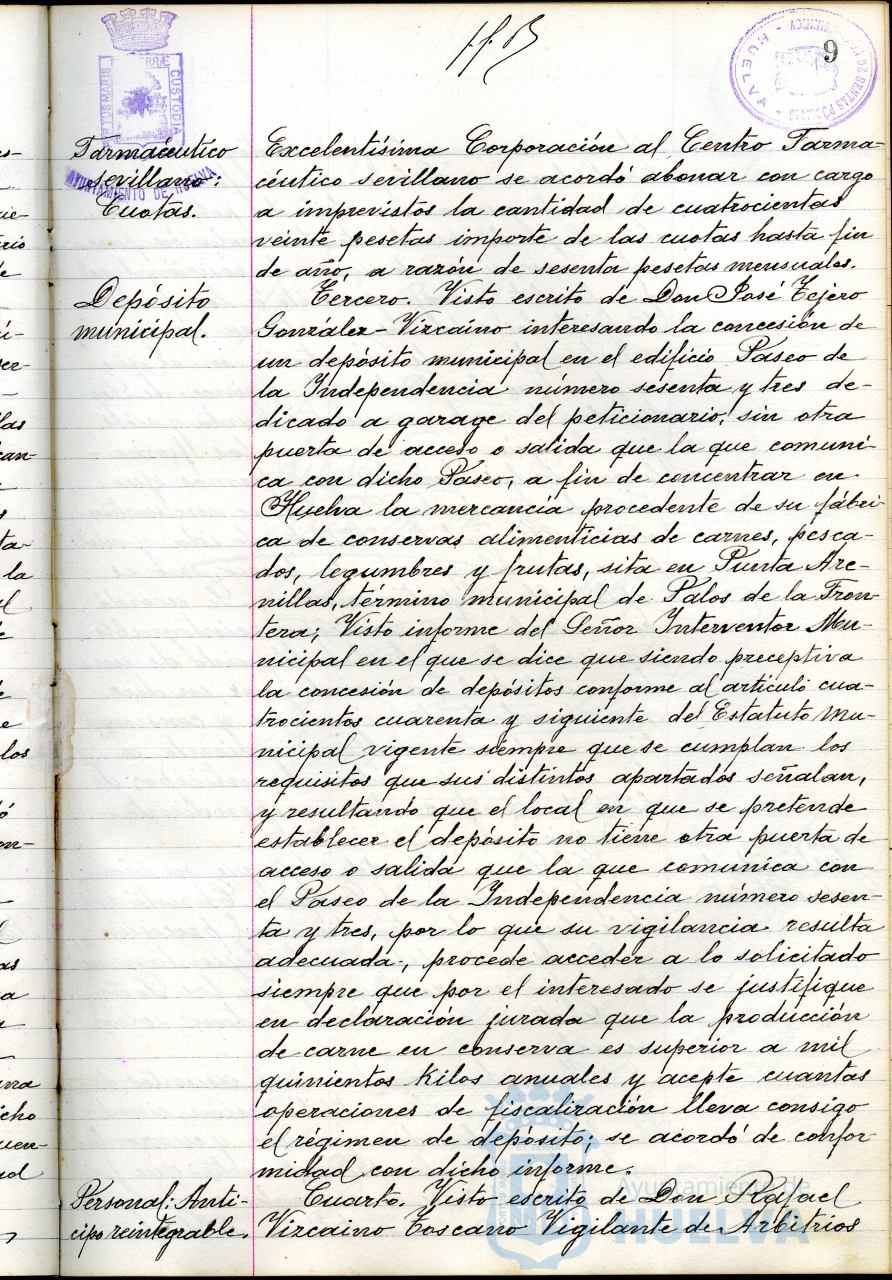 9
PORTUS MARIS
ET TERRÆ
CUSTODIA
AYUNTAMIENTO DE HUELVA
HUELVA
Farmacéutico
sevillano:
Cuotas.
Excelentísima Corporación al Centro Farma-
céutico sevillano se acordó abonar con cargo
a imprevistos la cantidad de cuatrocientas
veinte pesetas importe de las cuotas hasta fin
de año, a razón de sesenta pesetas mensuales.
Depósito
municipal.
Tercero. Visto escrito de Don José Tejero
González-Vizcaino interesando la concesión de
un depósito municipal en el edificio Paseo de
la Independencia número sesenta y tres de-
dicado a garage del peticionario, sin otra
puerta de acceso o salida que la que comuni-
ca con dicho Paseo, a fin de concentrar en
Huelva la mercancía procedente de su fábri-
ca de conservas alimenticias de carnes, pesca-
dos, legumbres y frutas, sita en Punta Are-
nillas, término municipal de Palos de la Fron-
tera; Visto informe del Señor Interventor Mu-
nicipal en el que se dice que siendo preceptiva
la concesión de depósitos conforme al artículo cua-
trocientos cuarenta y siguiente del Estatuto Mu-
nicipal vigente siempre que se cumplan los
requisitos que sus distintos apartados señalan,
y resultando que el local en que se pretende
establecer el depósito no tiene otra puerta de
acceso o salida que la que comunica con
el Paseo de la Independencia número sesen-
ta y tres, por lo que su vigilancia resulta
adecuada, procede acceder a lo solicitado
siempre que por el interesado se justifique
en declaración jurada que la producción
de carne en conserva es superior a mil
quinientos kilos anuales y acepte cuantas
operaciones de fiscalización lleva consigo
el régimen de depósito; se acordó de confor-
midad con dicho informe.
Personal: Anti-
cipo reintegrable.
Cuarto. Visto escrito de Don Rafael
Vizcaino Toscano Vigilante de Arbitrios
Ayuntamiento de
HUELVA